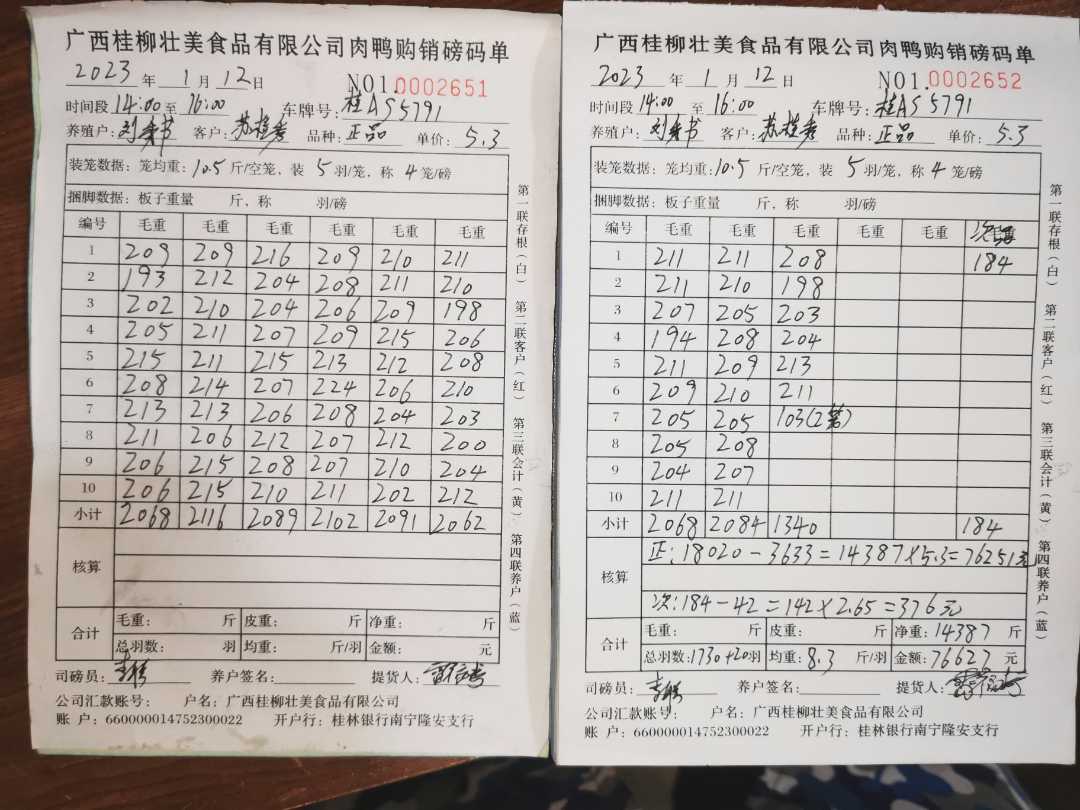 广西桂柳壮美食品有限公司肉鸭购销磅码单
2023 年 1 月 12 日 NO1.0002651
时间段 14:00 至 16:00 车牌号: 桂AS5791
养殖户: 客户: 苏桂秀 品种: 正品 单价: 5.3
装笼数据: 笼均重: 10.5 斤/空笼, 装 5 羽/笼, 称 4 笼/磅
捆脚数据: 板子重量 斤, 称 羽/磅
编号 毛重 毛重 毛重 毛重 毛重 毛重
1 209 209 216 209 210 211
2 193 212 204 208 211 210
3 202 210 204 206 209 198
4 205 211 207 209 215 206
5 215 211 215 213 212 208
6 208 214 207 224 206 210
7 213 213 206 208 204 203
8 211 206 212 207 212 200
9 206 215 208 207 210 204
10 206 215 210 211 202 212
小计 2068 2116 2089 2102 2091 2062
核算
合计 毛重: 斤 皮重: 斤 净重: 斤
总羽数: 羽 均重: 斤/羽 金额: 元
司磅员: 养户签名: 提货人:
公司汇款账号: 户名: 广西桂柳壮美食品有限公司
账 户: 660000014752300022 开户行: 桂林银行南宁隆安支行
第一联存根(白) 第二联客户(红) 第三联会计(黄) 第四联养户(蓝)
广西桂柳壮美食品有限公司肉鸭购销磅码单
2023 年 1 月 12 日 NO1.0002652
时间段 14:00 至 16:00 车牌号: 桂AS5791
养殖户: 客户: 苏桂秀 品种: 正品 单价: 5.3
装笼数据: 笼均重: 10.5 斤/空笼, 装 5 羽/笼, 称 4 笼/磅
捆脚数据: 板子重量 斤, 称 羽/磅
编号 毛重 毛重 毛重 毛重 毛重 次
1 211 211 208 184
2 211 210 198
3 207 205 203
4 194 208 204
5 211 209 213
6 209 210 211
7 205 205 103(2笼)
8 205 208
9 204 207
10 211 211
小计 2068 2084 1340 184
核算 正: 18020-3633=14387×5.3=76251元
次: 184-42=142×2.65=376元
合计 毛重: 斤 皮重: 斤 净重: 14387 斤
总羽数: 1730+20羽 均重: 8.3 斤/羽 金额: 76627 元
司磅员: 养户签名: 提货人:
公司汇款账号: 户名: 广西桂柳壮美食品有限公司
账 户: 660000014752300022 开户行: 桂林银行南宁隆安支行
第一联存根(白) 第二联客户(红) 第三联会计(黄) 第四联养户(蓝)